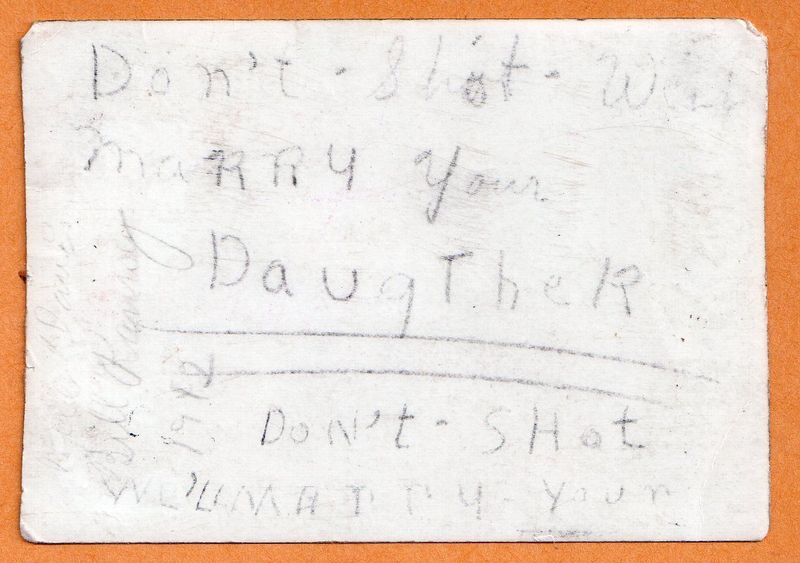 Don't - Shot - Will
Marry Your
DaugTheR
Don't - SHot
We'll MArry - Your
Bill
1942